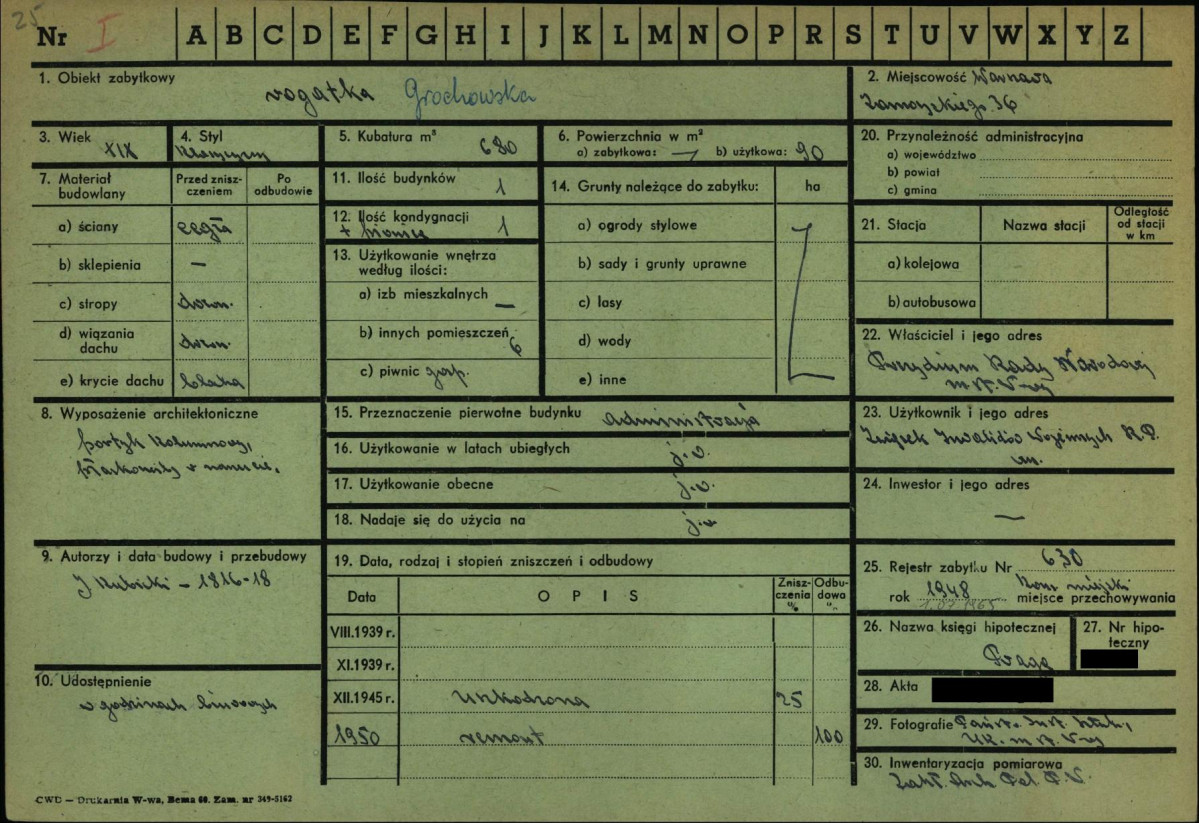 25
Nr I A B C D E F G H I J K L M N O P R S T U V W X Y Z
1. Obiekt zabytkowy
rogatka Grochowska
2. Miejscowość Warszawa
Zamoyskiego 36
3. Wiek
XIX
4. Styl
Klasycyzm
5. Kubatura m³ 680
6. Powierzchnia w m²
a) zabytkowa: — b) użytkowa: 90
20. Przynależność administracyjna
a) województwo
b) powiat
c) gmina
7. Materiał budowlany
Przed zniszczeniem
Po odbudowie
a) ściany cegła
b) sklepienia —
c) stropy drewn.
d) wiązania dachu drewn.
e) krycie dachu blacha
11. Ilość budynków 1
12. Ilość kondygnacji 1
13. Użytkowanie wnętrza
według ilości:
a) izb mieszkalnych —
b) innych pomieszczeń 6
c) piwnic gosp.
14. Grunty należące do zabytku: ha
a) ogrody stylowe
b) sady i grunty uprawne
c) lasy
d) wody
e) inne
21. Stacja
Nazwa stacji
Odległość od stacji w km
a) kolejowa
b) autobusowa
22. Właściciel i jego adres
Prezydium Rady Narodowej
m. st. W-wy
8. Wyposażenie architektoniczne
portyk kolumnowy,
płaskorzeźby
15. Przeznaczenie pierwotne budynku administracja
16. Użytkowanie w latach ubiegłych j.w.
17. Użytkowanie obecne j.w.
18. Nadaje się do użycia na j.w
23. Użytkownik i jego adres
Związek Inwalidów Wojennych R.P.
24. Inwestor i jego adres
—
9. Autorzy i data budowy i przebudowy
J Kubicki – 1816-18
19. Data, rodzaj i stopień zniszczeń i odbudowy
Data
O P I S
Zniszczenia %
Odbudowa %
VIII.1939 r.
XI.1939 r.
XII.1945 r. Uszkodzona 25
1950 remont 100
25. Rejestr zabytku Nr 630
rok 1948 miejsce przechowywania
1.07.1965
26. Nazwa księgi hipotecznej
Praga
27. Nr hipoteczny
10. Udostępnienie
w godzinach biurowych
28. Akta
29. Fotografie Państ. Inst. Sztuki,
UK. m. st. W-wy
30. Inwentaryzacja pomiarowa
Zakł. Arch. Pol. P.W.
CWD — Drukarnia W-wa, Bema 60. Zam. nr 349-5162